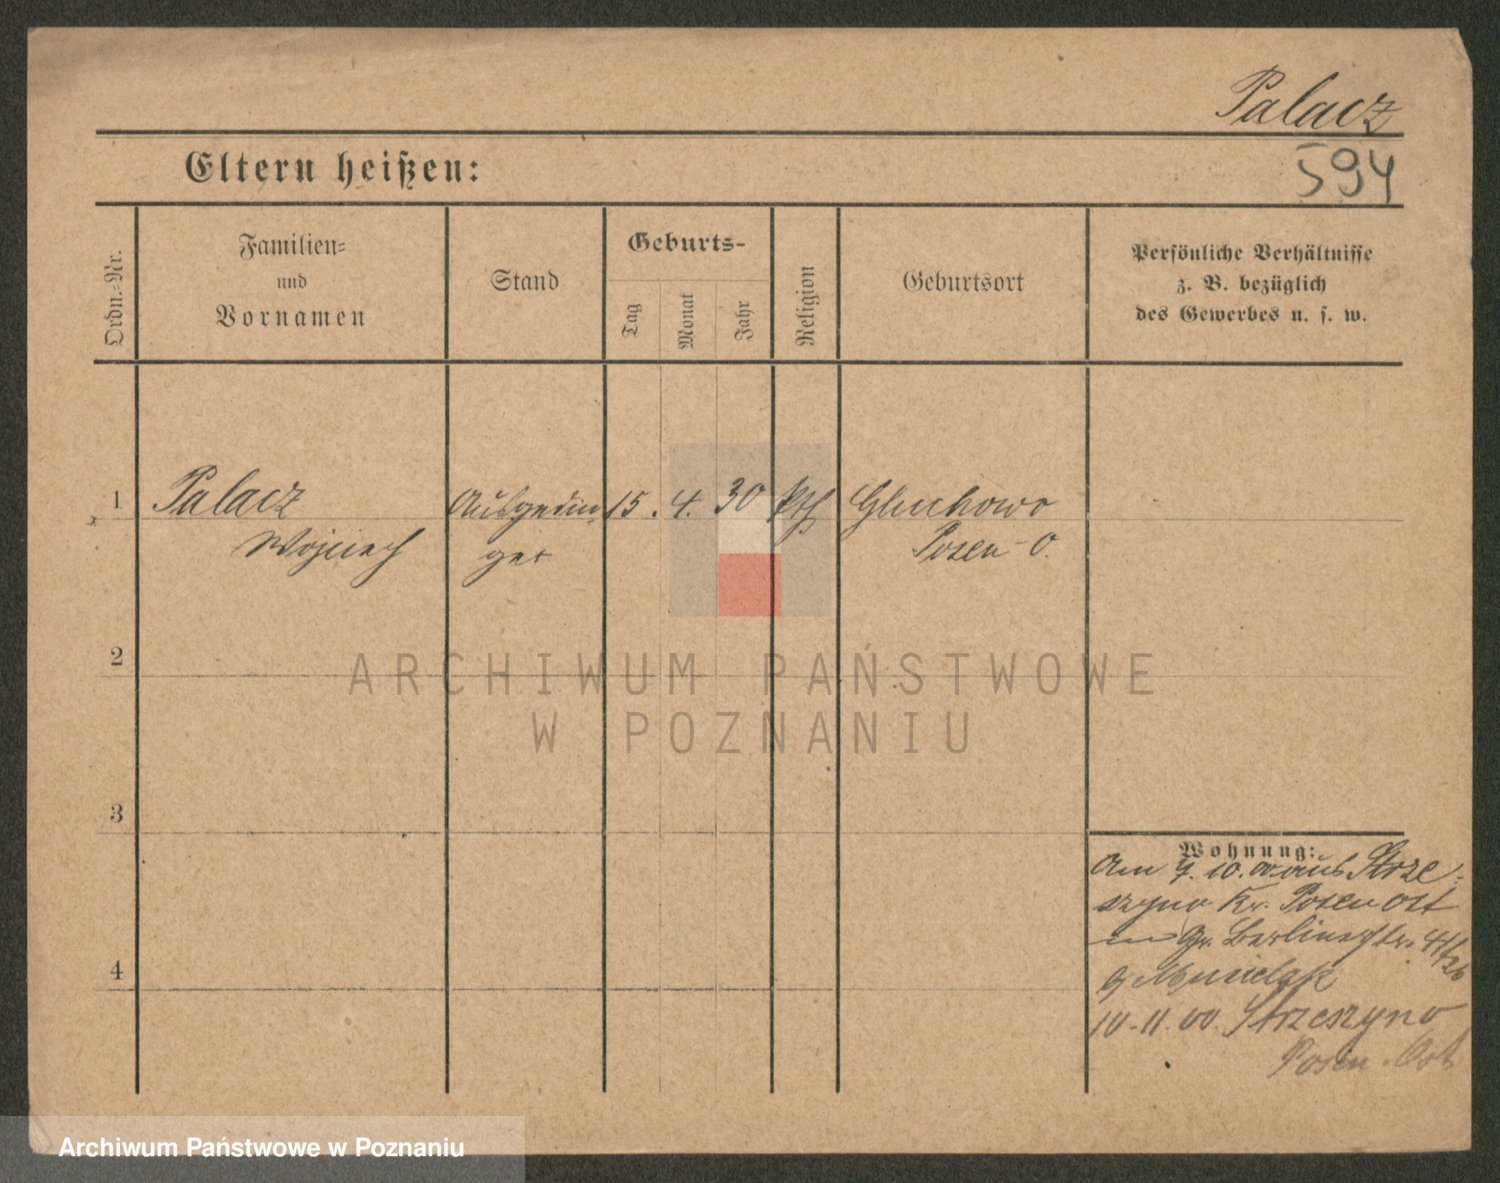 Palacz
594
Eltern heißen:
Ordn.-Nr.
Familien-
und
Vornamen
Stand
Geburts-
Tag
Monat
Jahr
Religion
Geburtsort
Persönliche Verhältnisse
z. B. bezüglich
des Gewerbes u. s. w.
1
Palacz
Wojciech
Ausgedin
ger
15. 4. 30
kth
Gluchowo
Posen-O.
2
3
4
Wohnung:
Am 7. 10. 00. aus Strze-
szyno Kr. Posen Ost
Gr. Berlinerstr.
Musielak
10. 11. 00. Strzeszyno
Posen. Ost
ARCHIWUM PAŃSTWOWE
W POZNANIU
Archiwum Państwowe w Poznaniu